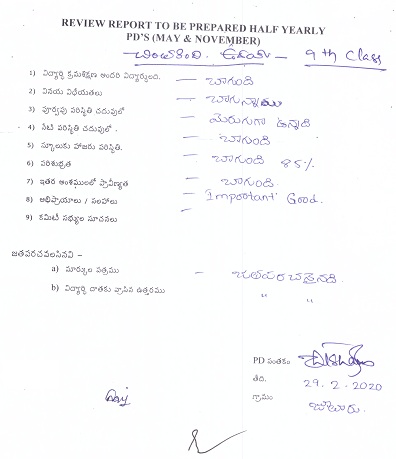 REVIEW REPORT TO BE PREPARED HALF YEARLY
PD'S (MAY & NOVEMBER)
ఉదయ్ - 9th Class
1) విద్యార్థి క్రమశిక్షణ అందరి విద్యార్థులది. — బాగుంది
2) వినయ విధేయతలు — బాగున్నాయి
3) పూర్వపు పరిస్థితి చదువులో — మెరుగుగా ఉన్నాది
4) నేటి పరిస్థితి చదువులో - — బాగుంది
5) స్కూలుకు హాజరు పరిస్థితి. — బాగుంది 85%
6) పరిశుభ్రత — బాగుంది.
7) ఇతర అంశములలో ప్రావీణ్యత
8) అభిప్రాయాలు / సలహాలు — Important Good.
9) కమిటీ సభ్యుల సూచనలు —
జతపరచవలసినవి –
a) మార్కుల పత్రము — జతపరచనైనది.
b) విద్యార్థి దాతకు వ్రాసిన ఉత్తరము " "
PD సంతకం
తేది. 29.2.2020
గ్రామం